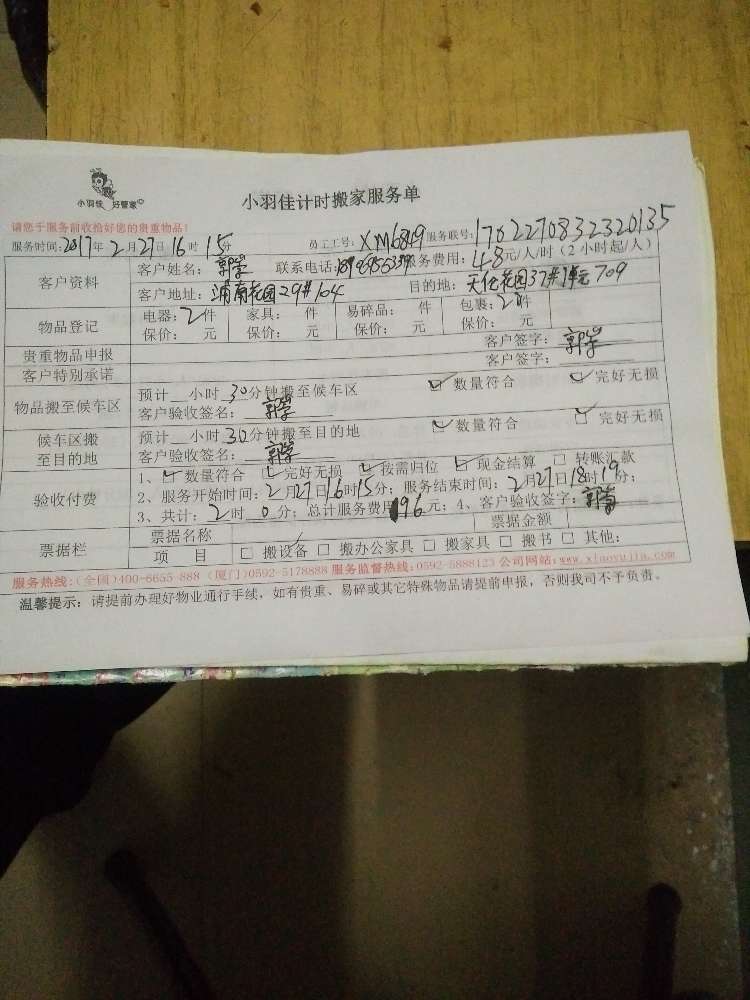 小羽佳 好管家
小羽佳计时搬家服务单
请您于服务前收拾好您的贵重物品!
服务时间:2017年2月27日16时15分 员工工号:XM6849 服务联号:1702270832320135
客户资料 客户姓名: 联系电话: 服务费用:48元/人/时(2小时起/人)
客户地址:浦南花园29#104 目的地:天伦花园37#1单元709
物品登记 电器:2件 家具: 件 易碎品: 件 包裹:2件
保价: 元 保价: 元 保价: 元 保价: 元
贵重物品申报 客户签字:
客户特别承诺 客户签字:
物品搬至候车区 预计 小时30分钟搬至候车区 数量符合 完好无损
客户验收签名:
候车区搬至目的地 预计 小时30分钟搬至目的地 数量符合 完好无损
客户验收签名:
验收付费 1、数量符合 完好无损 按需归位 现金结算 转账汇款
2、服务开始时间:2月27日16时15分;服务结束时间:2月27日18时19分;
3、共计:2时0分;总计服务费用196元;4、客户验收签字:
票据栏 票据名称 票据金额
项 目 搬设备 搬办公家具 搬家具 搬书 其他:
服务热线:(全国)400-6655-888 (厦门)0592-5178888 服务监督热线:0592-5888123 公司网站:www.xiaoyujia.com
温馨提示:请提前办理好物业通行手续,如有贵重、易碎或其它特殊物品请提前申报,否则我司不予负责。